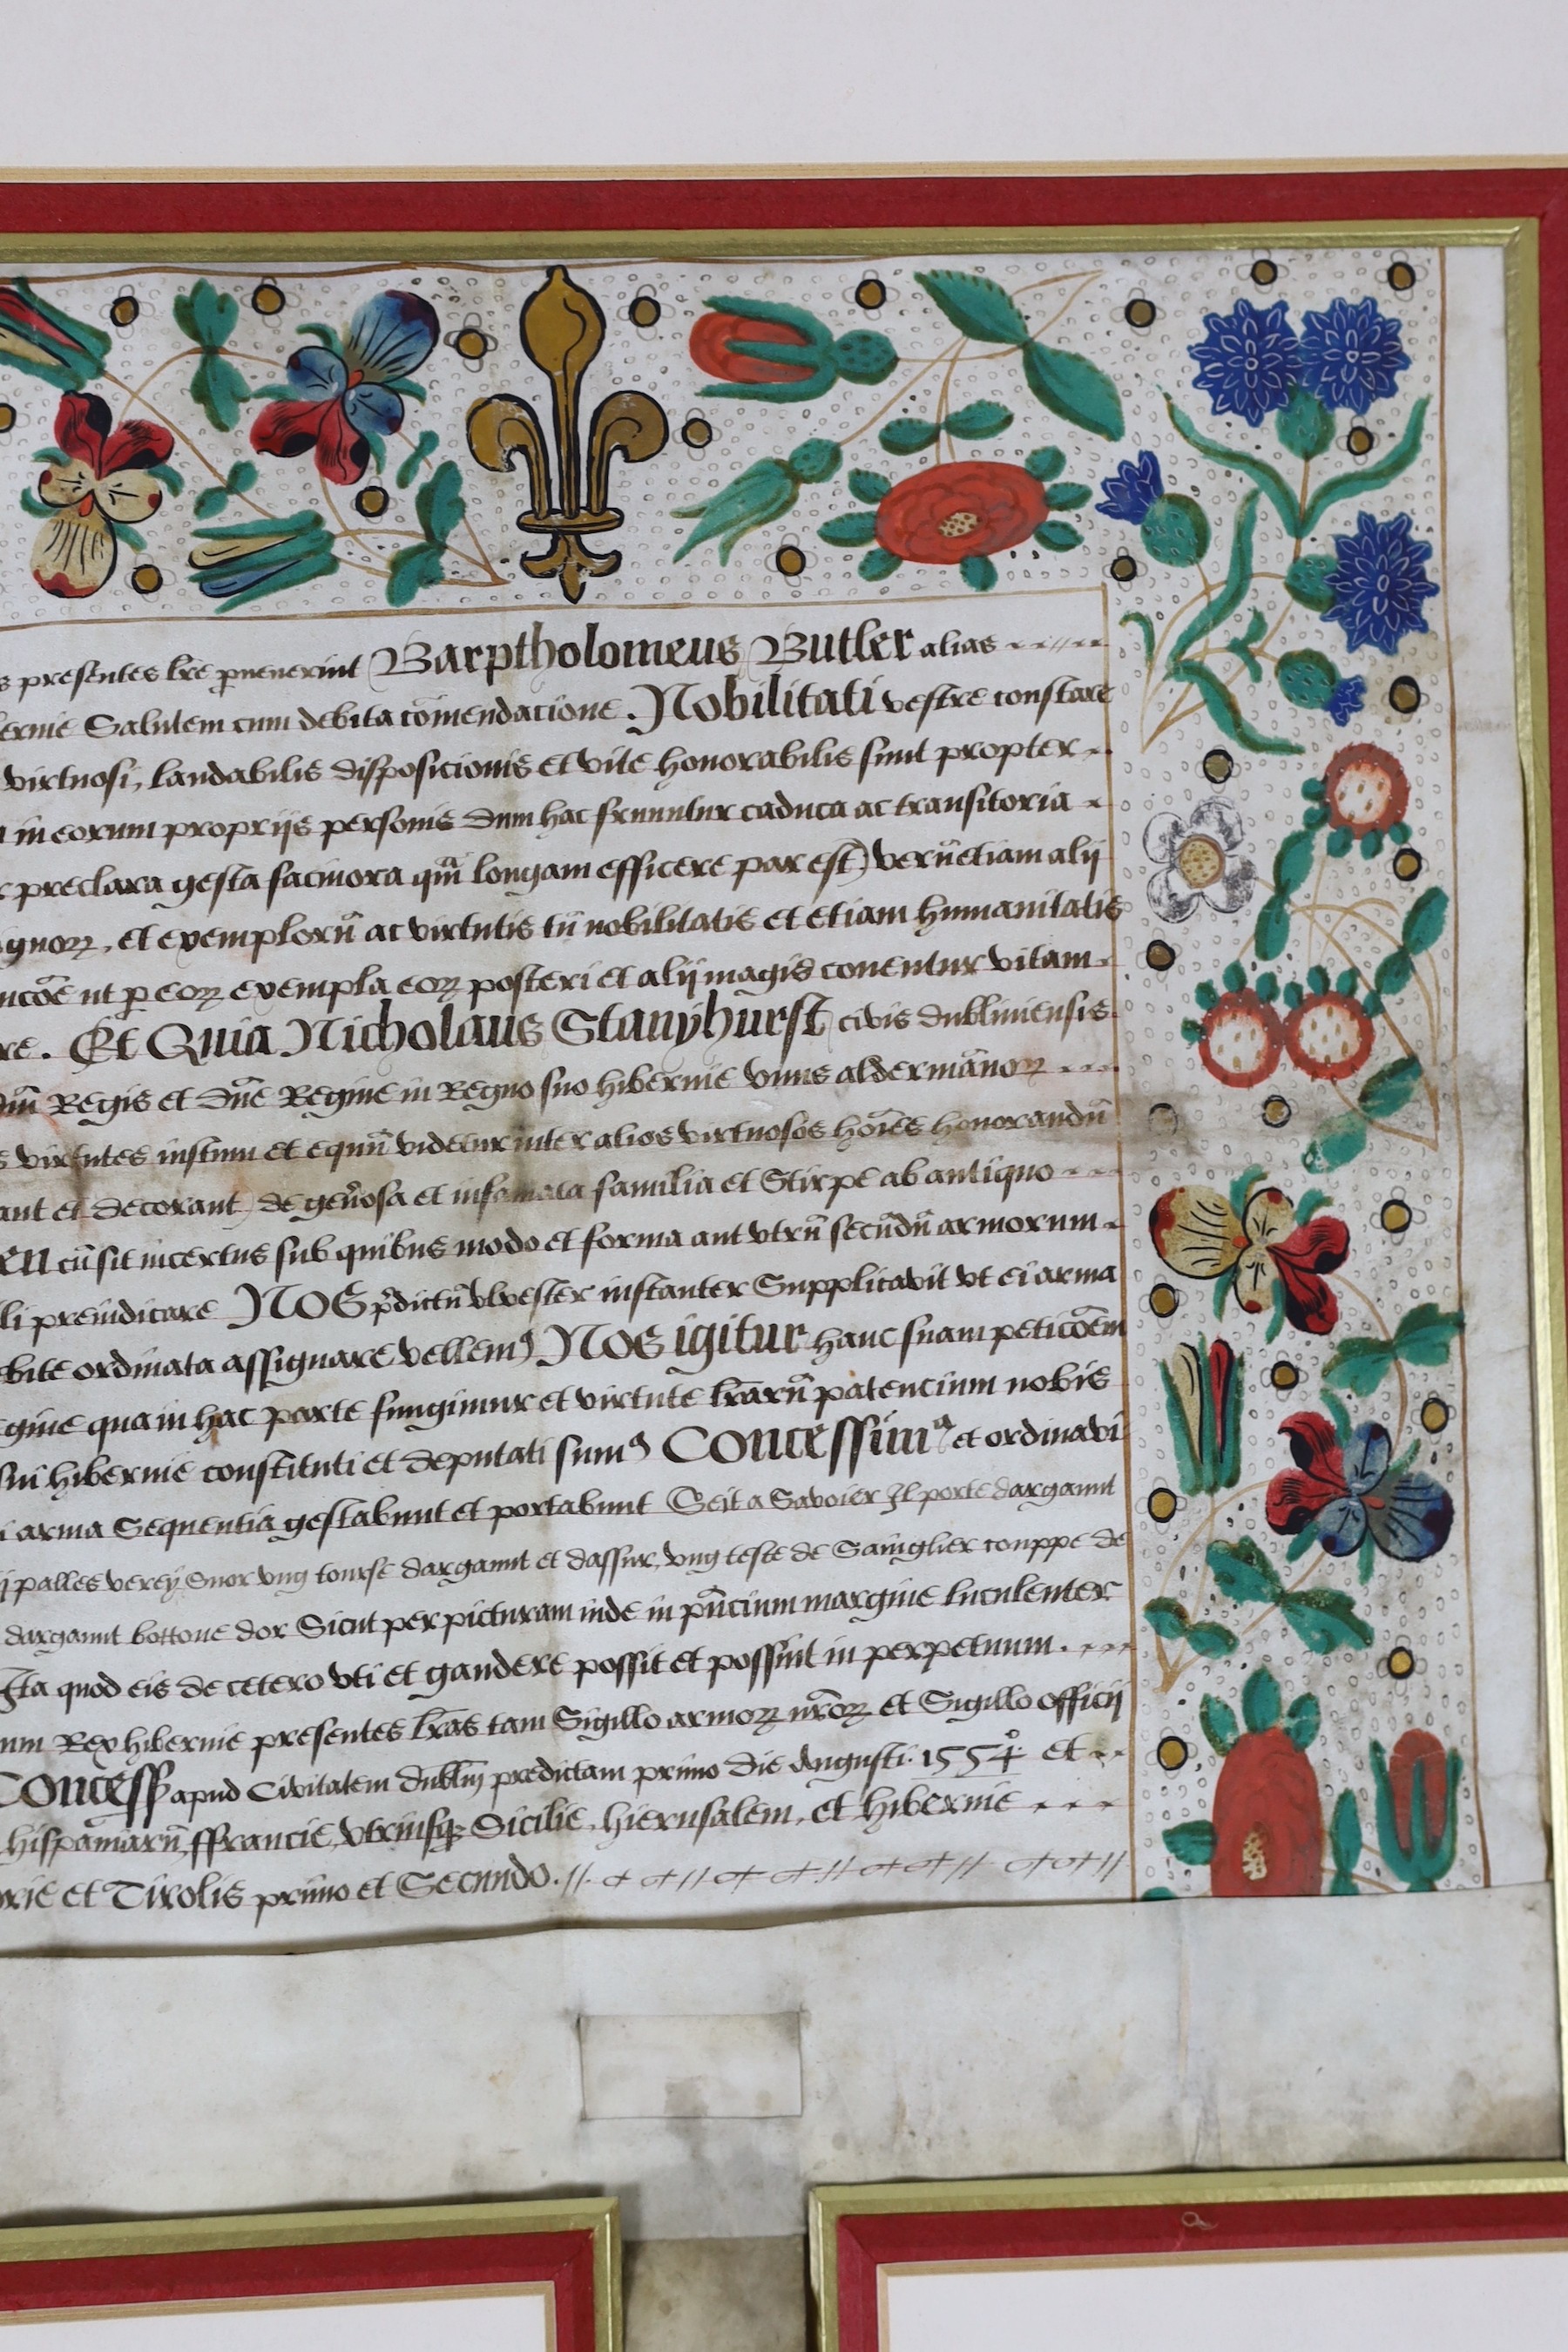 presentes lre pervenerint Barptholomeus Butler alias
Salutem cum debita comendacione. Nobilitati vestre constare
virtuosi, laudabilis disposicionis et vite honorabilis sunt propter
in eorum proprijs personis dum hac fruuntur caduca ac transitoria
preclara gesta facinora qm longam efficere par est) veru etiam alij
et exemploru ac virtutis tu nobilitatis et etiam humanitatis
ut p eoꝝ exempla eoꝝ posteri et alij magis conentur vitam
re. Et Quia Nicholaus Stanyhurst civis dubliniensis
Regis et dne Regine in Regno suo hibernie unus aldermanoꝝ
virtutes iustum et equu videtur inter alios virtuosos hoies honorandu
ant et decorant) de generosa et infamata familia et Stirpe ab antiquo
cu sit incertus sub quibus modo et forma aut utru secudu armorum
preiudicare NOS pdictu Ulvester instanter Supplicavit ut ei arma
ordinata assignare vellem⁹ Nos igitur hanc suam peticoem
gine qua in hac parte fungimur et virtute lraru patencium nobis
sui hibernie constituti et deputati sum⁹ Concessim⁹ et ordinavi
arma Sequentia gestabunt et portabunt Seit a Savoier Il porte dargannt
palles verey Suor ung tourse dargannt et dassur, ung teste de Sainglier couppe de
dargannt bottone dor Sicut per picturam inde in pncium margine luculenter
Ita quod eis de cetero uti et gaudere possit et possint in perpetuum.
Rex hibernie presentes lras tam Sigillo armoꝝ nroꝝ et Sigillo officij
Concess apud Civitatem dublin predictam primo die Augusti. 1554° et
hispaniaru, ffrancie, utriusqꝫ Sicilie, hierusalem, et hibernie
et Tirolis primo et Secundo.